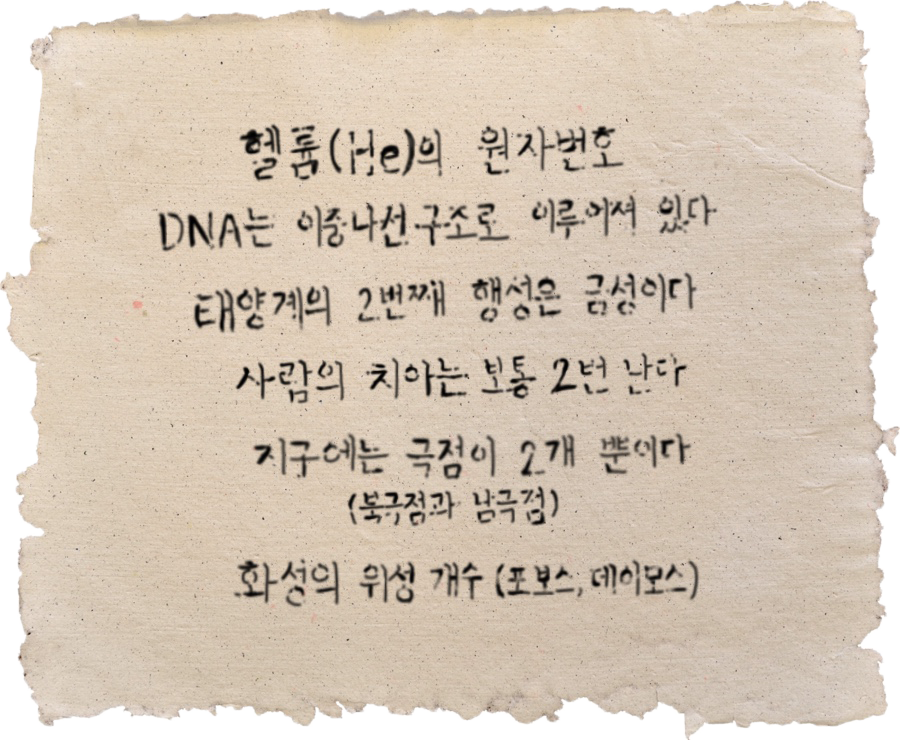 헬륨(He)의 원자번호
DNA는 이중나선구조로 이루어져 있다
태양계의 2번째 행성은 금성이다
사람의 치아는 보통 2번 난다
지구에는 극점이 2개 뿐이다
(북극점과 남극점)
화성의 위성 개수 (포보스, 데이모스)